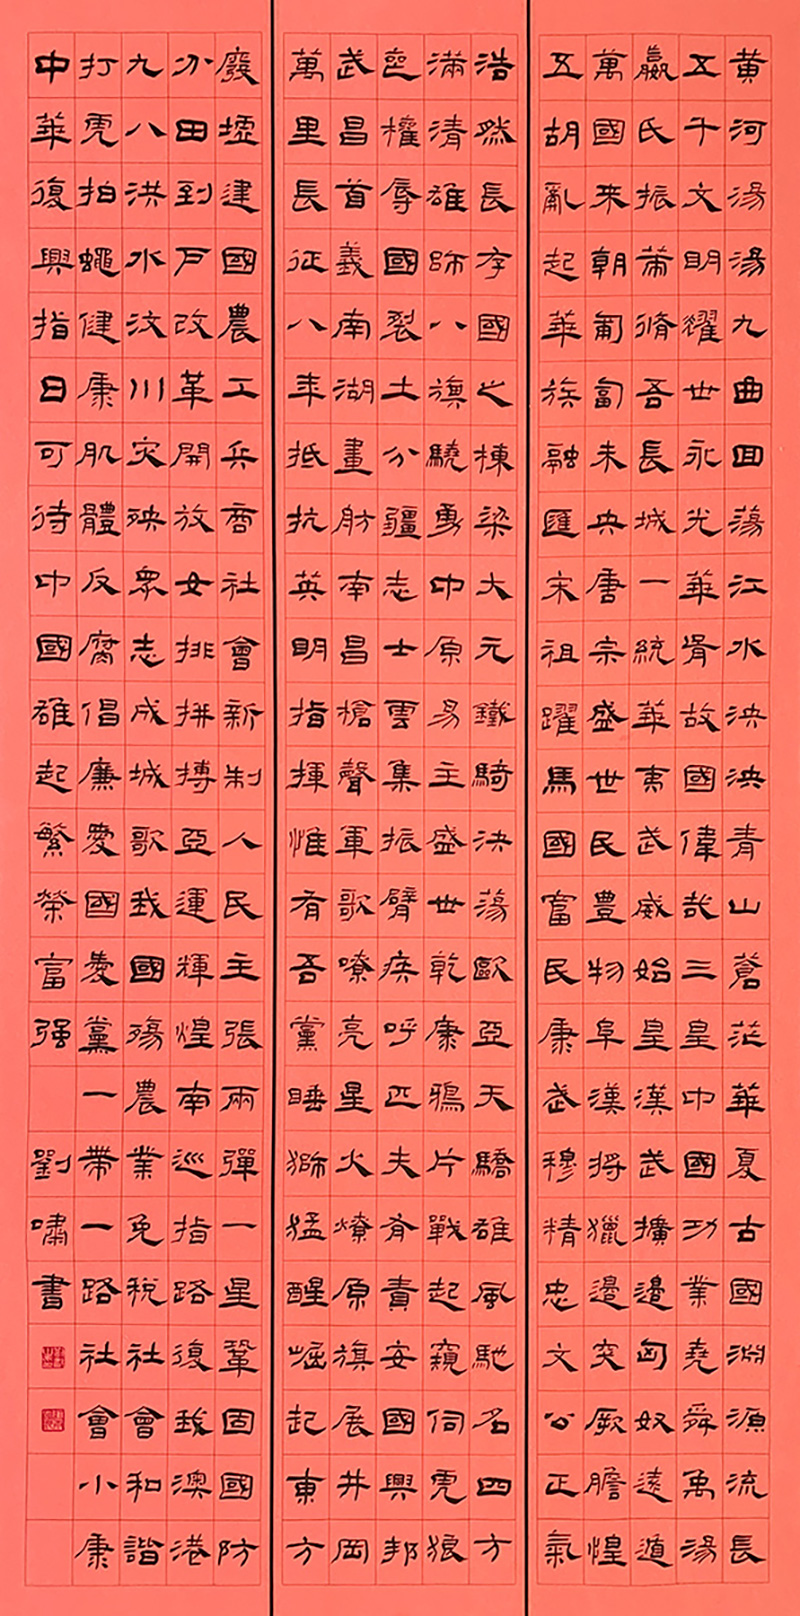 黄河湯湯九曲回蕩江水泱泱青山蒼茫華夏古國淵源流長
五千文明耀世永光華胥故國偉哉三皇中國功業堯舜禹湯
嬴氏振策脩吾長城一統華夷武威始皇漢武擴邊匈奴遠遁
萬國來朝匍匐未央唐宗盛世民豐物阜漢將獵邊突厥膽惶
五胡亂起華族融匯宋祖躍馬國富民康武穆精忠文公正氣
浩然長存國之棟梁大元鐵騎決蕩歐亞天驕雄風馳名四方
滿清雄師八旗驍勇中原易主盛世乾康鴉片戰起窺伺虎狼
喪權辱國裂土分疆志士雲集振臂疾呼匹夫有責安國興邦
武昌首義南湖畫舫南昌槍聲軍歌嘹亮星火燎原旗展井岡
萬里長征八年抵抗英明指揮惟有吾黨睡獅猛醒崛起東方
廢墟建國農工兵商社會新制人民主張兩彈一星鞏固國防
分田到戶改革開放女排拼搏亞運輝煌南巡指路復我澳港
九八洪水汶川灾殃眾志成城歌我國殤農業免稅社會和諧
打虎拍蠅健康肌體反腐倡廉愛國愛黨一帶一路社會小康
中華復興指日可待中國雄起繁榮富强
劉嘯書